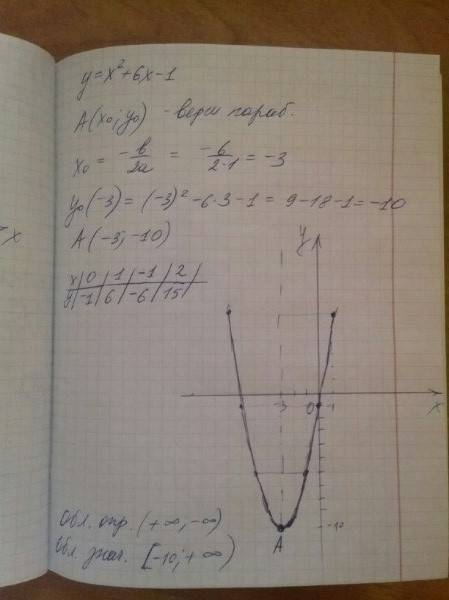 y=x²+6x-1
A(x₀; y₀) - верш. параб.
x₀ = -b/2a = -6/2·1 = -3
y₀(-3) = (-3)² -6·3 -1 = 9-18-1 = -10
A(-3; -10)
x | 0 | 1 | -1 | 2 |
y | -1 | 6 | -6 | 15 |
y
-3 0 1 x
-10
A
Обл. опр. (+∞, -∞)
Обл. знач. [-10; +∞)
x